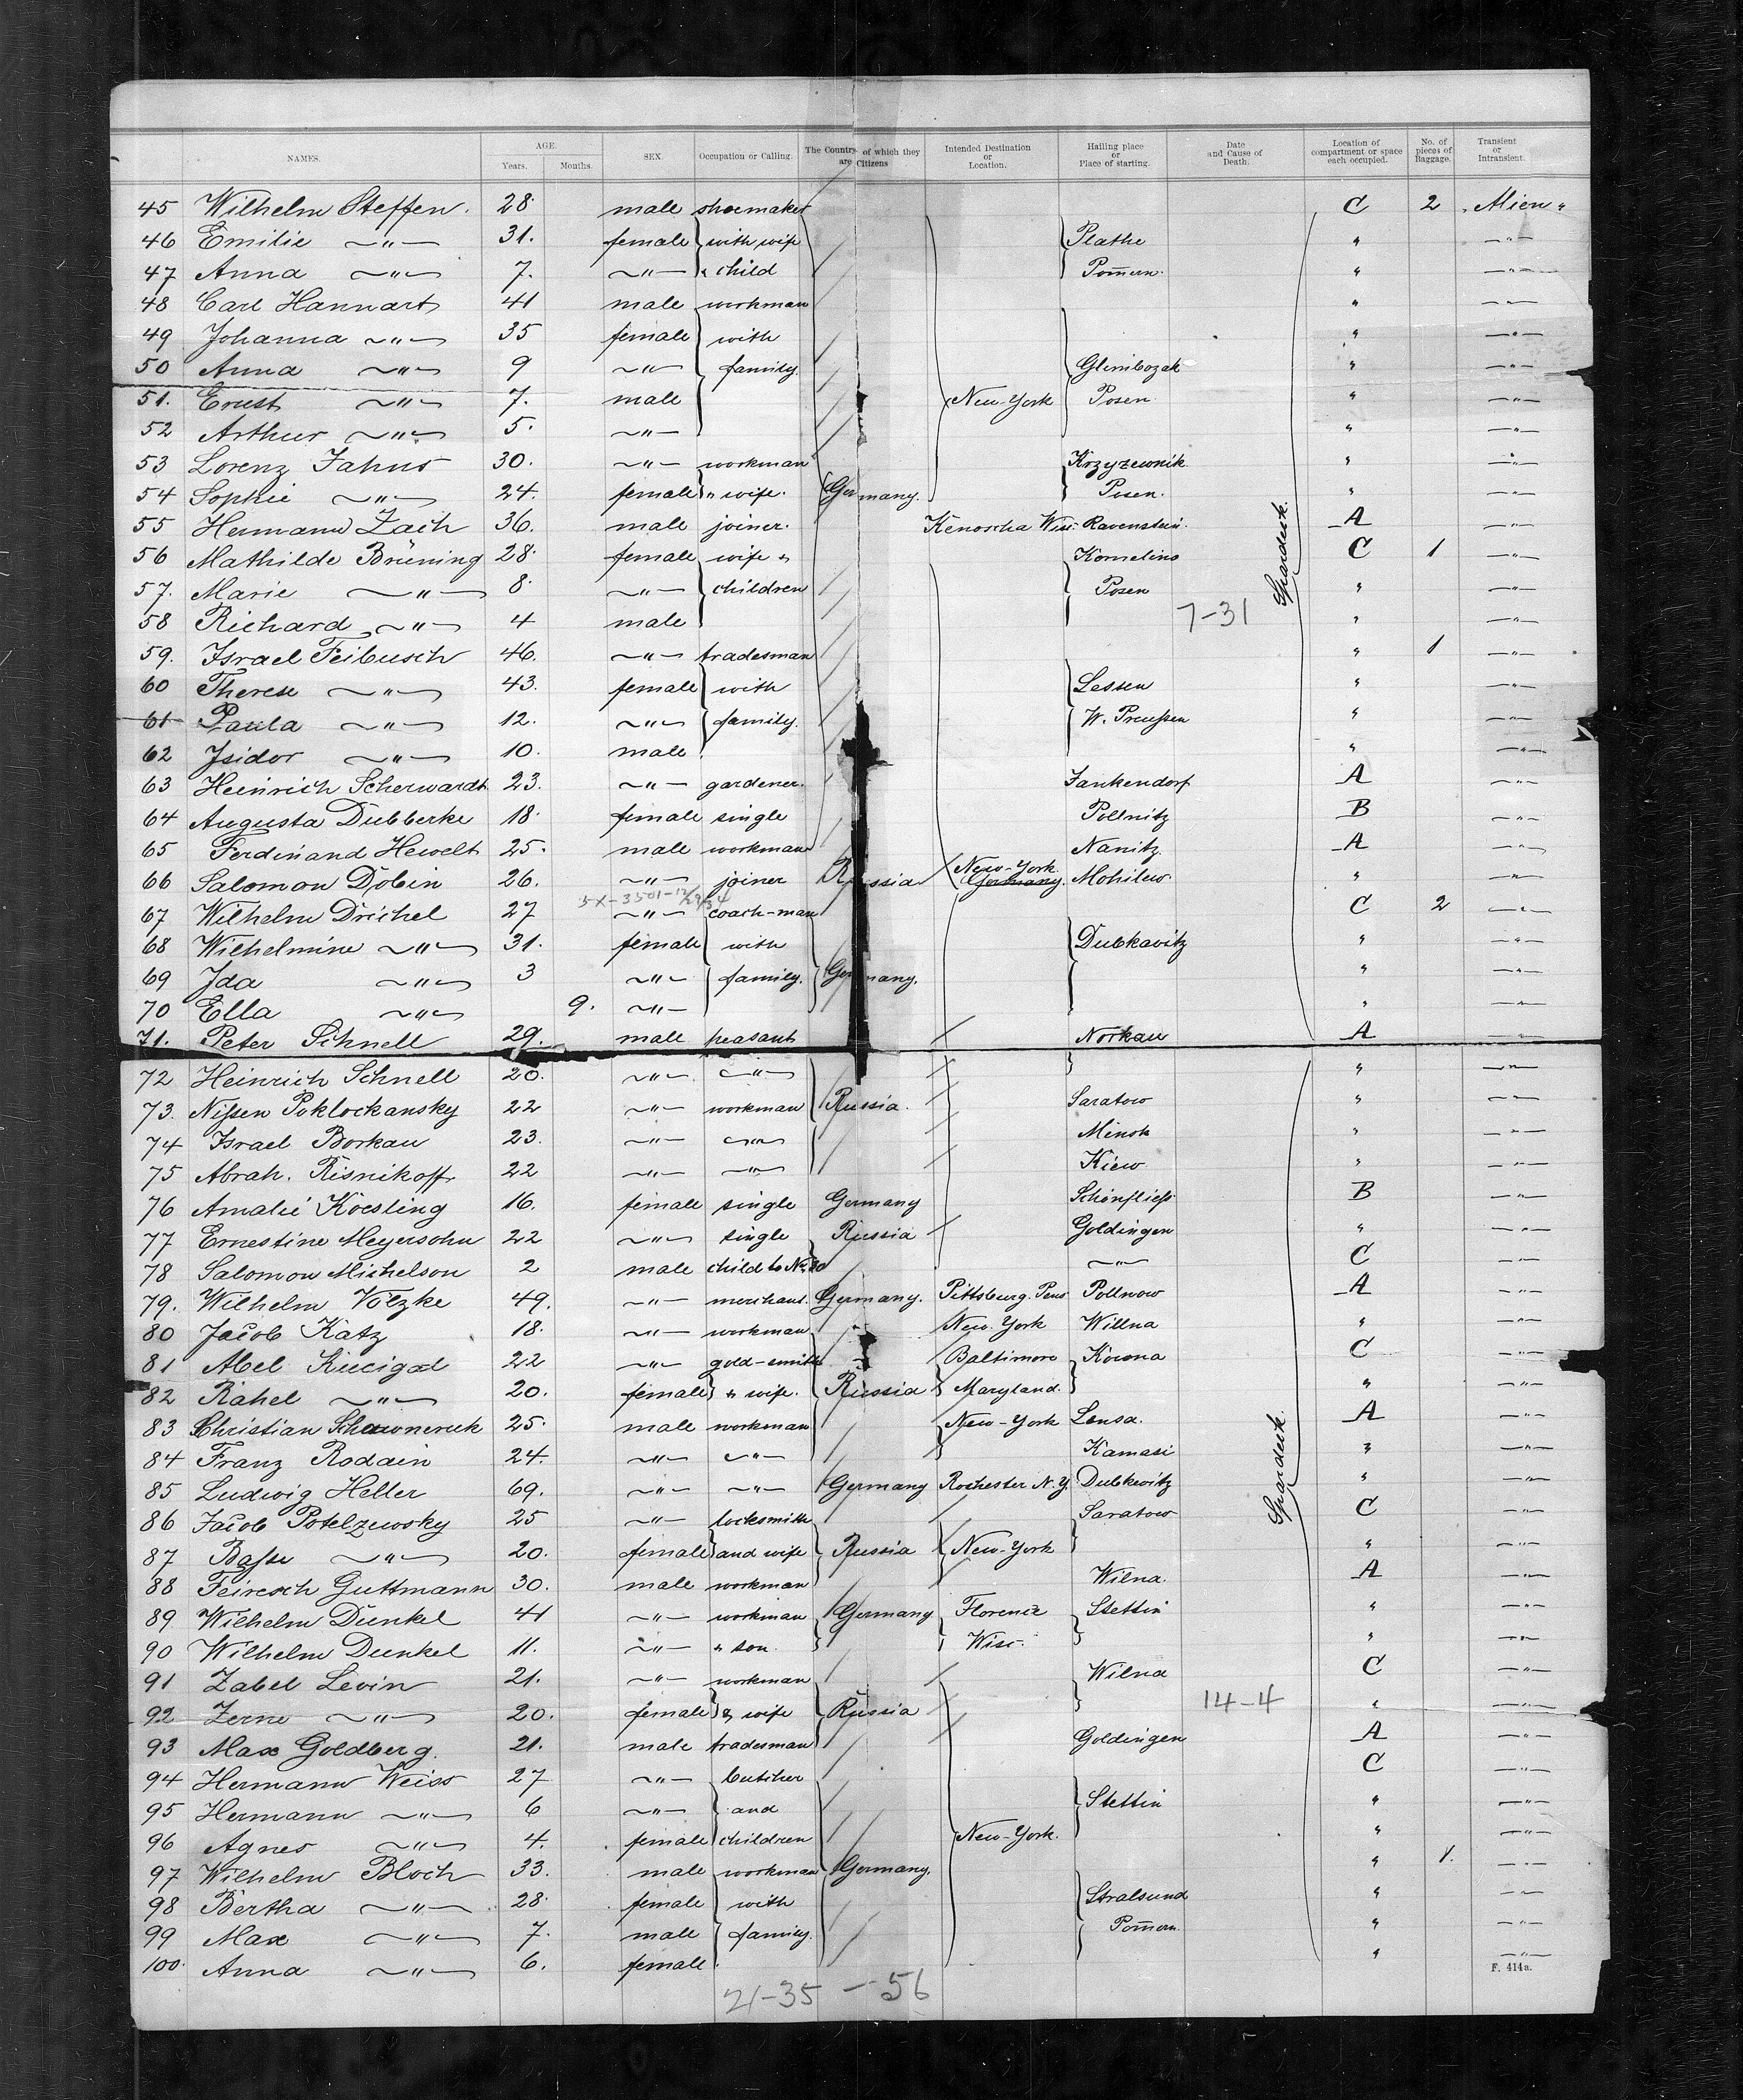 NAMES. AGE. Years. Months. SEX. Occupation or Calling. The Country of which they are Citizens Intended Destination or Location. Hailing place or Place of starting. Date and Cause of Death. Location of compartment or space each occupied. No. of pieces of Baggage. Transient or Intransient.
45 Wilhelm Steffen. 28. male shoemaker C 2
46 Emilie —"— 31. female with wife Plathe "  —"—
47 Anna —"— 7. —"— & child Pom̄ern. " —"—
48 Carl Hannart 41 male workman " —"—
49 Johanna —"— 35 female with " —"—
50 Anna —"— 9 —"— family. " —"—
51. Ernst —"— 7. male New-York Posen " —"—
52 Arthur —"— 5. —"— " —"—
53 Lorenz Jahns 30. —"— workman " —"—
54 Sophie —"— 24. female " wife. Germany. Posen. " —"—
55 Hermann Zach 36. male joiner. Kenoscha Wis. Ravenstein. A —"—
56 Mathilde Brüning 28. female wife & C 1 —"—
57. Marie —"— 8. —"— children Posen " —"—
58 Richard —"— 4 male 7-31 " —"—
59. Israel Feibusch 46. —"— tradesman " 1 —"—
60 Therese —"— 43. female with Lessen " —"—
61 Paula —"— 12. —"— family. W. Preußen " —"—
62 Isidor —"— 10. male " —"—
63 Heinrich Scherwardt 23. —"— gardener. Jankendorf A —"—
64 Augusta Dubberke 18. female single Pollnitz B —"—
65 Ferdinand Hewelt 25. male workman Nanitz A —"—
66 Salomon Dobin 26. —"— joiner Russia New-York Germany. Mohilew. " —"—
5X-3501-12/29/34
67 Wilhelm Drichel 27 —"— coach-man C 2 —"—
68 Wilhelmine —"— 31. female with Dubkavitz " —"—
69 Ida —"— 3 —"— family. Germany. " —"—
70 Ella —"— 9. —"— " —"—
71. Peter Schnell 29. male peasant Norkau A —"—
72 Heinrich Schnell 20. —"— —"— " —"—
73. Nißen Poklockansky 22 —"— workman Russia. Saratow " —"—
74 Israel Borkau 23. —"— —"— Minsk " —"—
75 Abrah. Risnikoff 22 —"— —"— Kiew " —"—
76 Amalie Koesling 16. female single Germany Schönfließ B —"—
77 Ernestine Meyersohn 22 —"— single Russia Goldingen " —"—
78 Salomon Michelson 2 male child to No. —"— C —"—
79. Wilhelm Völzke 49. —"— merchant. Germany. Pittsburg. Pens Pollnow A —"—
80 Jacob Katz 18. —"— workman New-York Willna " —"—
81 Abel Kucigal 22 —"— gold-smith Baltimore Kowna C —"—
82 Rahel —"— 20. female & wife. Russia Maryland. " —"—
83 Christian 25. male workman New-York Lensa. A —"—
84 Franz Rodain 24. —"— —"— Kamasi " —"—
85 Ludwig Heller 69. —"— —"— Germany Rochester N.Y. Dubkevitz " —"—
86 Jacob Potelzewsky 25 —"— locksmith Saratow C —"—
87 Baße —"— 20. female and wife Russia New-York " —"—
88 Guttmann 30. male workman Wilna. A —"—
89 Wilhelm Dunkel 41 —"— workman Germany Florence Stettin " —"—
90 Wilhelm Dunkel 11. —"— " son. Wisc. " —"—
91 Zabel Levin 21. —"— workman Wilna C —"—
92 Zerne —"— 20. female & wife Russia 14-4 " —"—
93 Max Goldberg. 21. male tradesman Goldingen A —"—
94 Hermann Weiss 27 —"— butcher C —"—
95 Hermann —"— 6 —"— and Stettin " —"—
96 Agnes —"— 4. female children New-York. " —"—
97 Wilhelm Bloch 33. male workman Germany. " 1. —"—
98 Bertha —"— 28. female with Stralsund " —"—
99 Max —"— 7. male family. Pom̄ern. " —"—
100. Anna —"— 6. female " —"—
F. 414a.
21-35 — 56